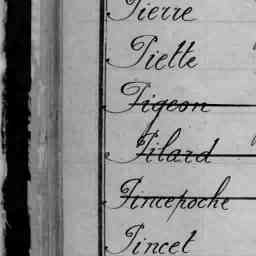 Pierre
Piette
Pigeon
Pilard
Pincepoche
Pincet